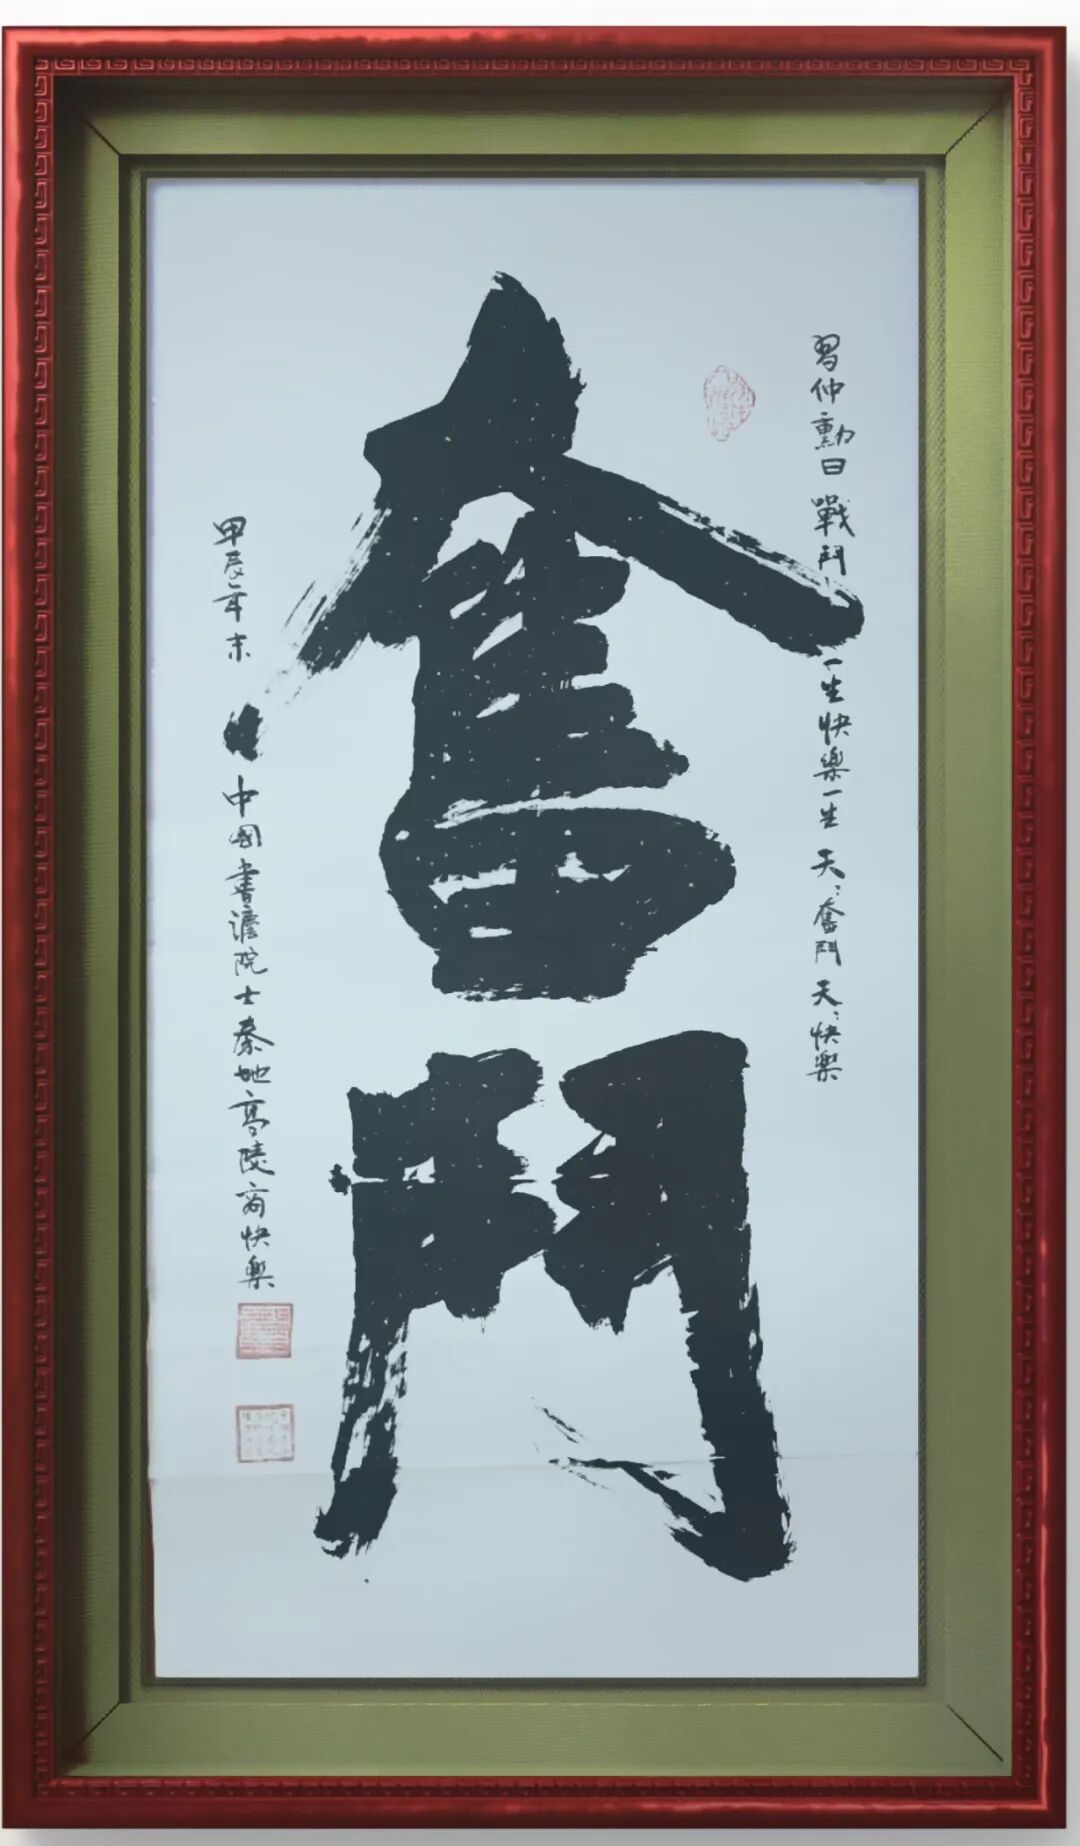 習仲勳曰戰鬥一生快樂一生 天:奮鬥天:快樂
奮鬥
甲辰年末
中國書灋院士秦地高陵商快樂